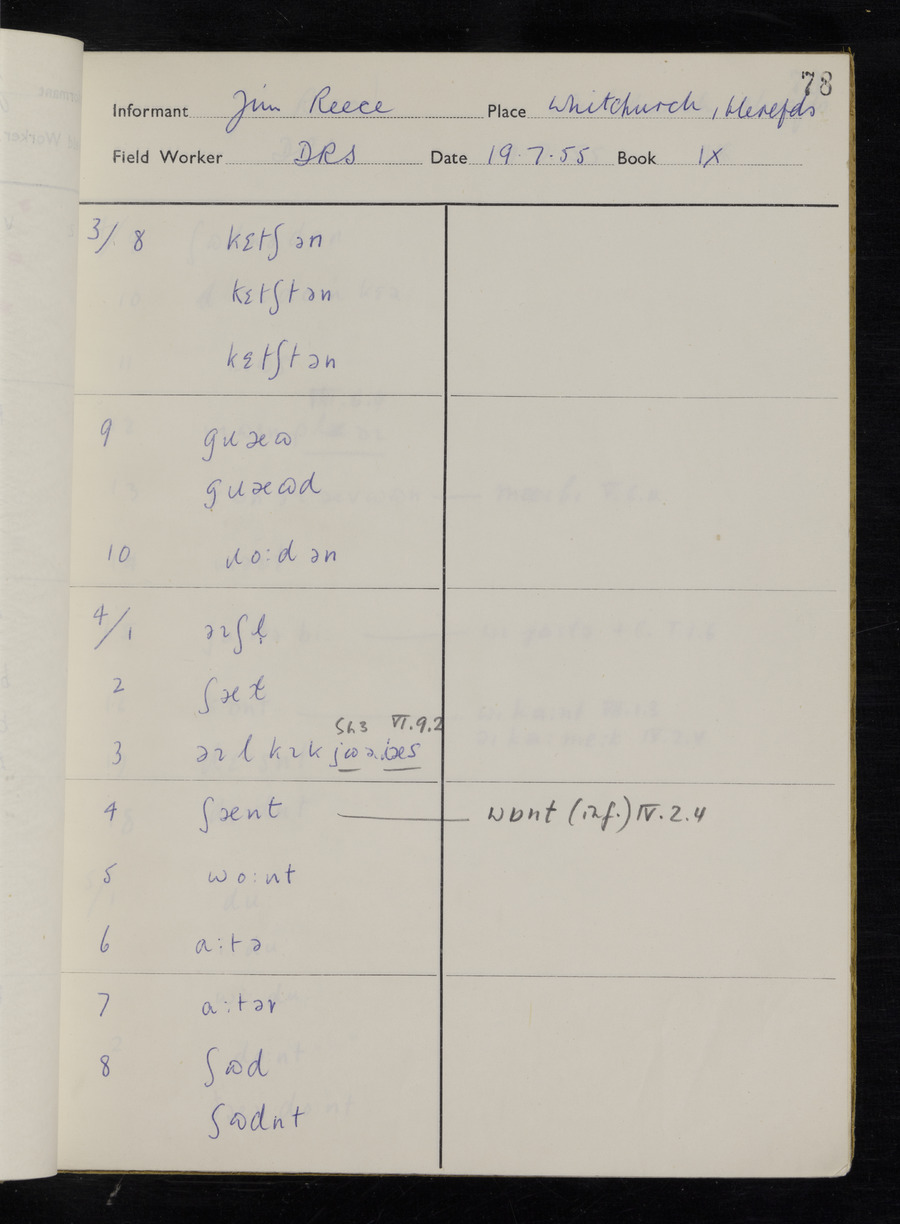 78
Informant Jim Reece Place Whitchurch, Herefds
Field Worker DRS Date 19.7.55 Book IX
3/8 kɛtʃən
kɛtʃtən
kɛtʃtən
9 gɹæɷ
gɹæɷd
10 ɹo:dən
4/1 əɪʃḷ
2 ʃæɫ
Sh3 VI.9.2
3
4 ʃænt wɒnt (inf.) IV.2.4
5 wo:nt
6 a:tə
7 a:tər
8 ʃɷd
ʃɷdnt